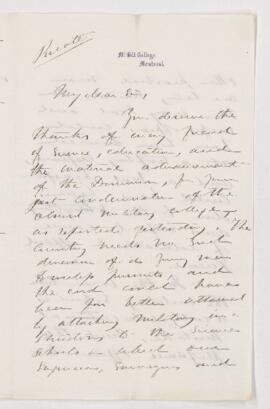 Private
McGill College,
Montreal.
My dear Sir,
You deserve the
thanks of every friend
of Science, education, and
the material advancement
of the Dominion, for your
just condemnation of the
absurd Military College,
as reported yesterday. The
Country needs no such
diversion of its young men
to warlike pursuits, and
the end could have
been far better attained
by attaching military in-
structions to the Science
Schools in which our
Engineers, Surveyors and